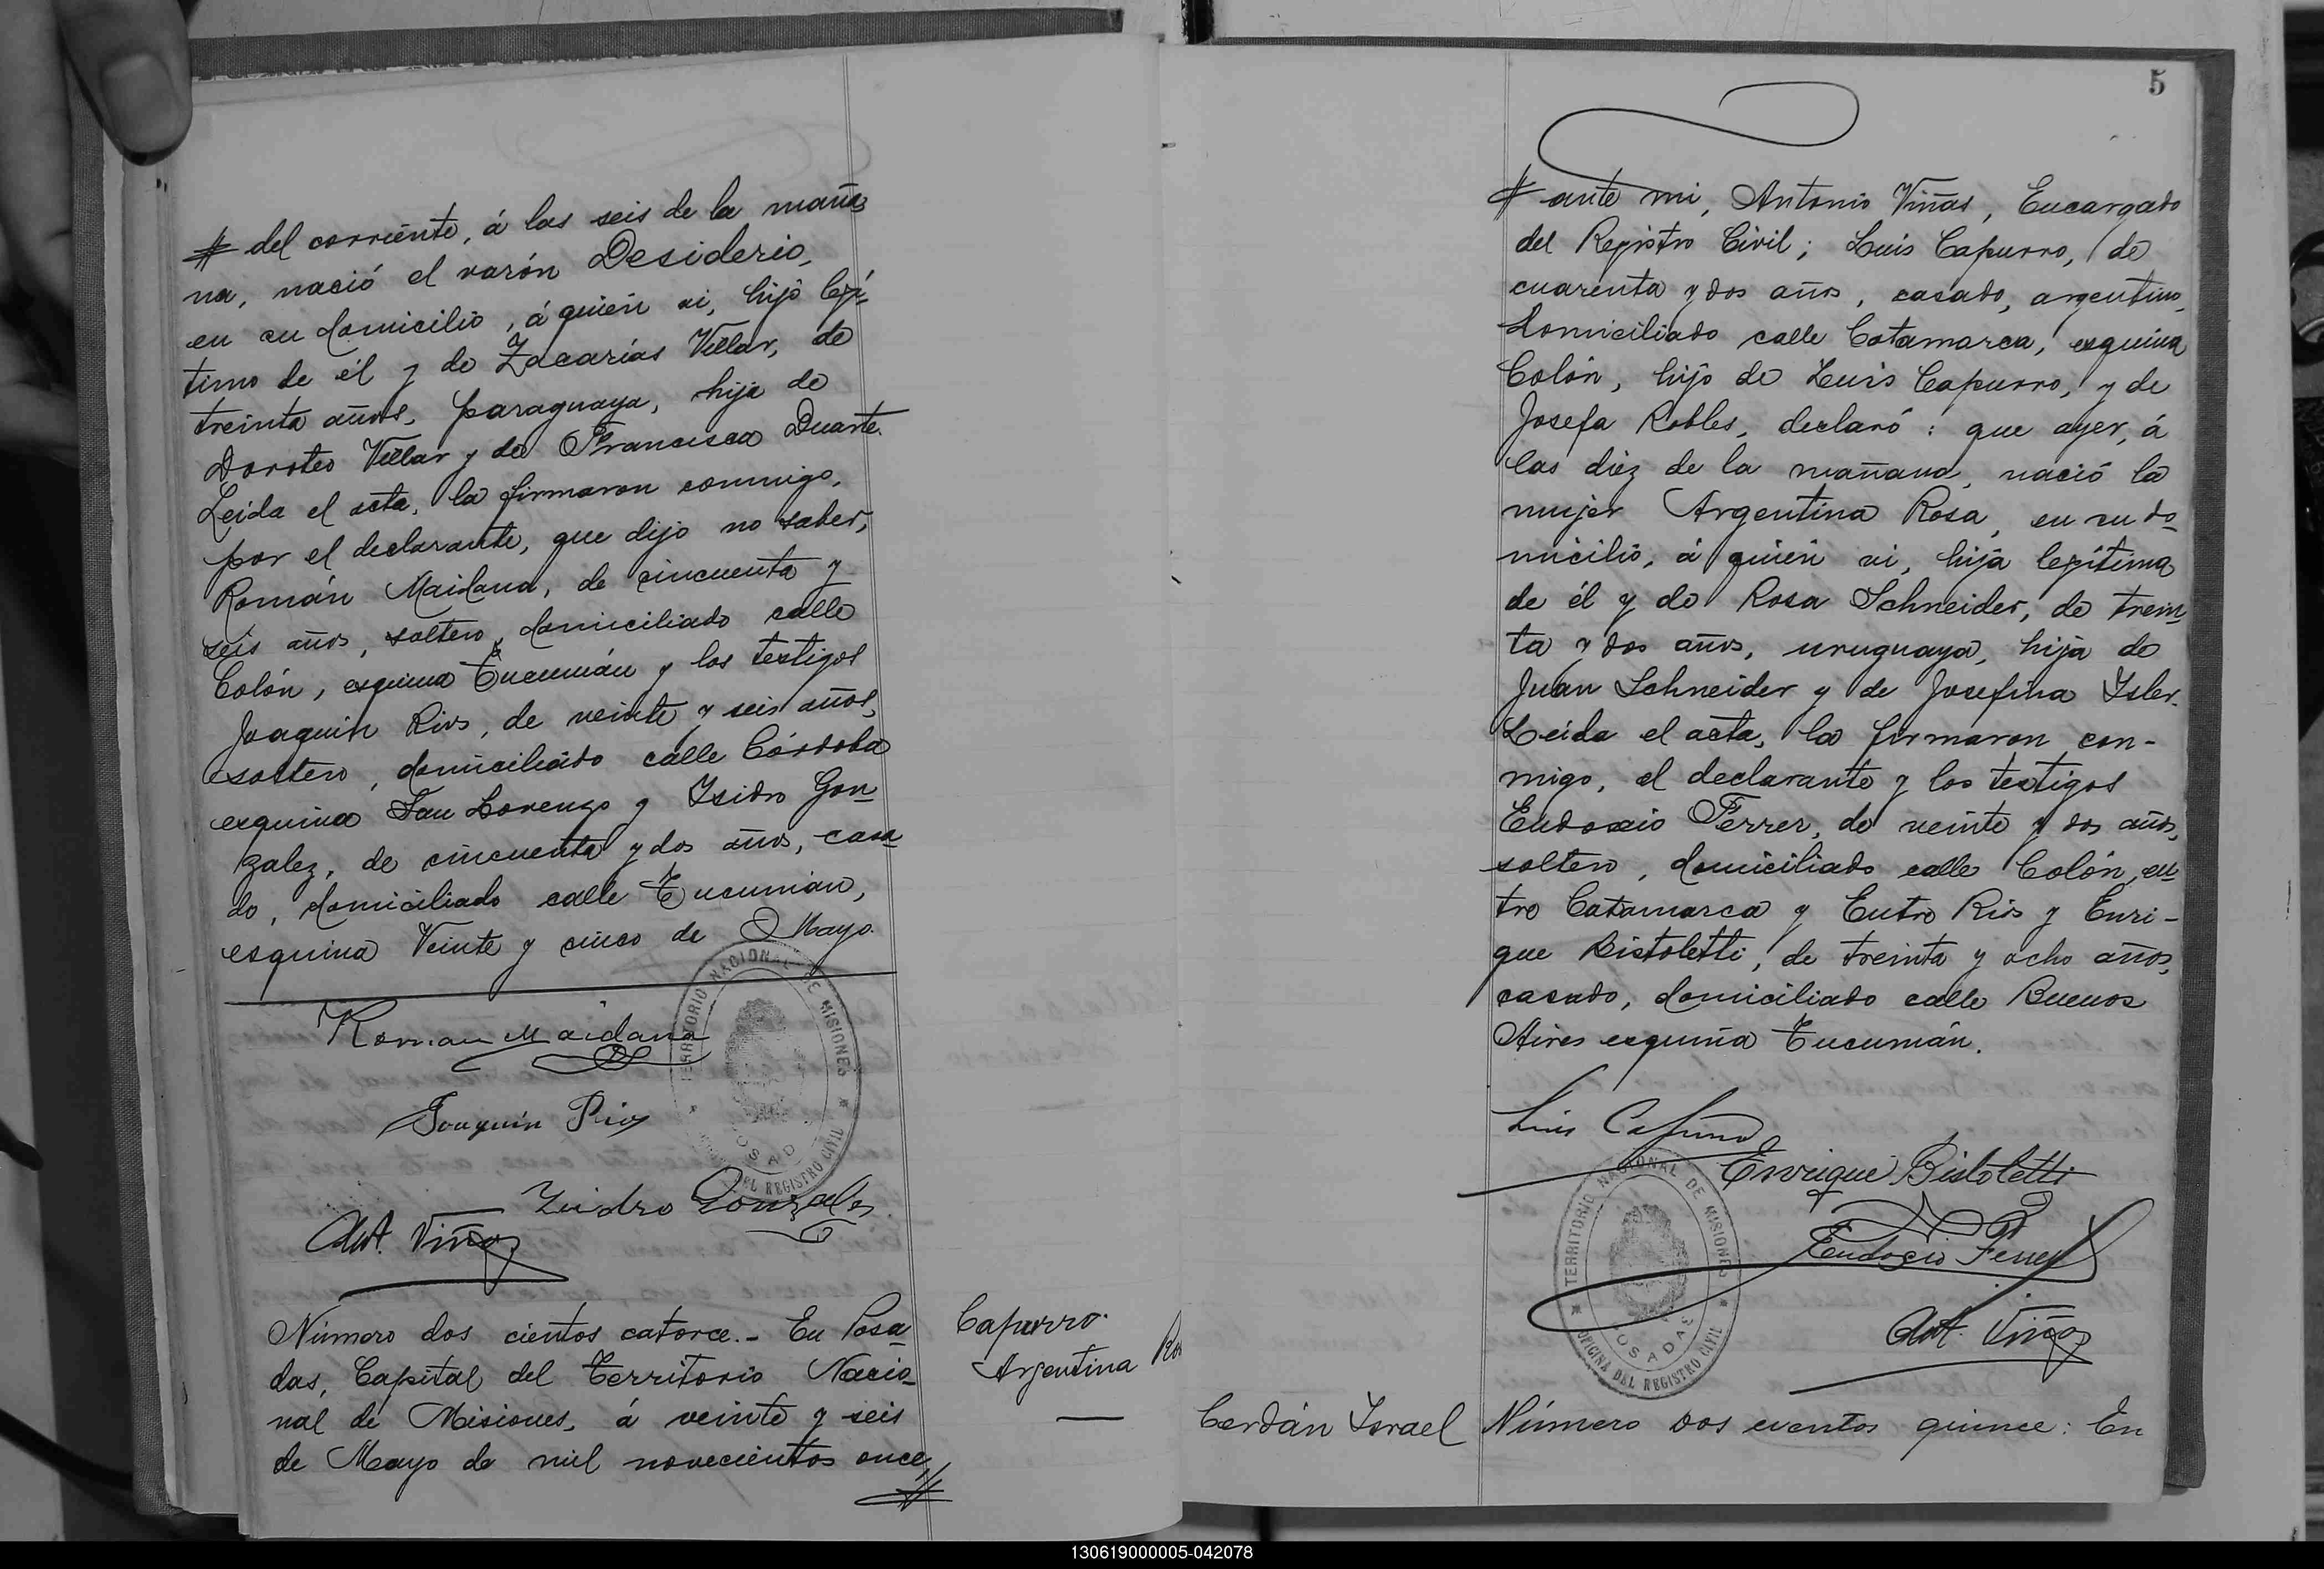 # del corriente, á las seis de la maña-
na, nació el varón Desiderio,
en su domicilio, á quien vi, hijo legí-
timo de él y de Zacarías Villar, de
treinta años, paraguaya, hija de
Doroteo Villar y de Francisca Duarte.
Leida el acta, la firmaron conmigo,
por el declarante, que dijo no saber,
Román Maidana, de cincuenta y
seis años, soltero, domiciliado calle
Colón, esquina Tucumán y los testigos
Joaquin Rios, de veinte y seis años,
soltero, domiciliado calle Córdoba
esquina San Lorenzo y Isidro Gon-
zalez, de cincuenta y dos años, casa-
do, domiciliado calle Tucumán,
esquina Veinte y cinco de Mayo.
Roman Maidana
Joaquín Rios
Isidro Gonzales
Ant. Viñas
TERRITORIO NACIONAL DE MISIONES
DEL REGISTRO CIVIL
Número dos cientos catorce.- En Posa-
das, Capital del Territorio Nacio-
nal de Misiones, á veinte y seis
de Mayo de mil novecientos once, #
Capurro.
Argentina Ros
5
# ante mi, Antonio Viñas, Encargado
del Registro Civil; Luis Capurro, de
cuarenta y dos años, casado, argentino,
domiciliado calle Catamarca, esquina
Colón, hijo de Luis Capurro, y de
Josefa Robles, declaró: que ayer, á
las diez de la mañana, nació la
mujer Argentina Rosa, en su do-
micilio, á quien vi, hija legítima
de él y de Rosa Schneider, de trein-
ta y dos años, uruguaya, hija de
Juan Schneider y de Josefina Isler.
Leida el acta, la firmaron con-
migo, el declarante y los testigos
Eudoxio Ferrer, de veinte y dos años,
soltero, domiciliado calle Colón, en-
tre Catamarca y Entre Rios y Enri-
que Bistoletti, de treinta y ocho años,
casado, domiciliado calle Buenos
Aires esquina Tucumán.
Luis Capurro
Enrique Bistoletti
Eudogio Ferrer
Ant. Viñas
TERRITORIO NACIONAL DE MISIONES
POSADAS
OFICINA DEL REGISTRO CIVIL
Cerdán Israel
Número dos cientos quince: En
130619000005-042078